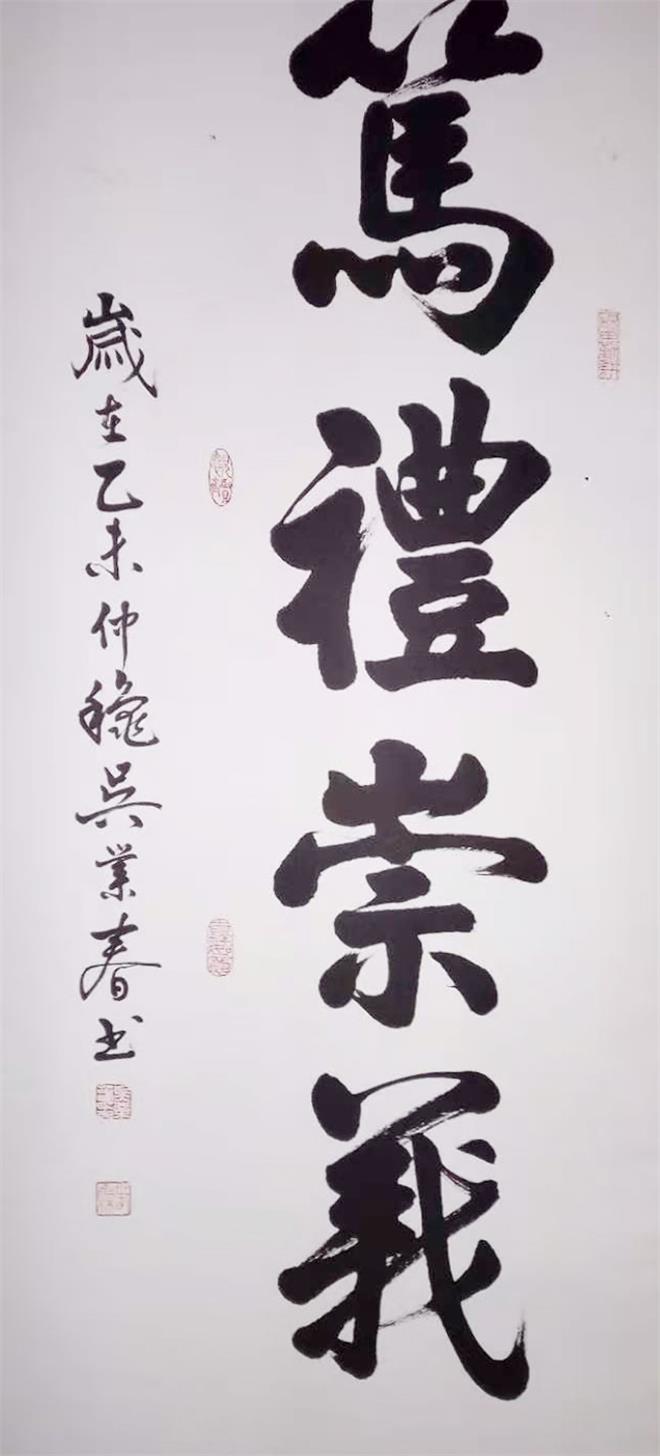 篤禮崇義
歲在乙未仲龝吳業春书